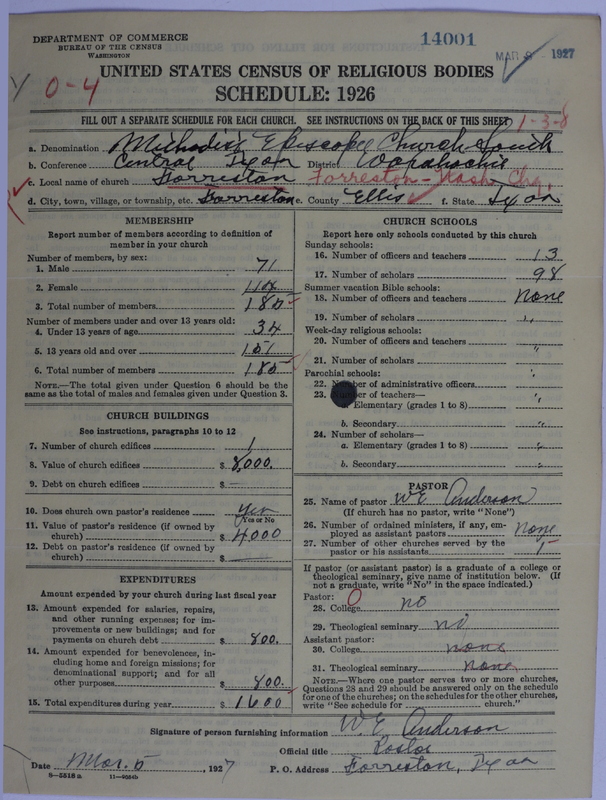 DEPARTMENT OF COMMERCE
BUREAU OF THE CENSUS
WASHINGTON
14001
MAR 8 - 1927
UNITED STATES CENSUS OF RELIGIOUS BODIES
SCHEDULE: 1926
0-4
FILL OUT A SEPARATE SCHEDULE FOR EACH CHURCH. SEE INSTRUCTIONS ON THE BACK OF THIS SHEET
1-3-8
a. Denomination Methodist Episcopal Church South
b. Conference Central Texas District Waxahachie
c. Local name of church Forreston Forreston-Nash Chg.
d. City, town, village, or township, etc. Forreston e. County Ellis f. State Texas
MEMBERSHIP
Report number of members according to definition of member in your church
Number of members, by sex:
1. Male 71
2. Female 114
3. Total number of members 185
Number of members under and over 13 years old:
4. Under 13 years of age 34
5. 13 years old and over 151
6. Total number of members 185
NOTE.—The total given under Question 6 should be the same as the total of males and females given under Question 3.
CHURCH BUILDINGS
See instructions, paragraphs 10 to 12
7. Number of church edifices 1
8. Value of church edifices $ 8,000.
9. Debt on church edifices $ —
10. Does church own pastor's residence yes
Yes or No
11. Value of pastor's residence (if owned by church) $ 4000
12. Debt on pastor's residence (if owned by church) $
EXPENDITURES
Amount expended by your church during last fiscal year
13. Amount expended for salaries, repairs, and other running expenses; for improvements or new buildings; and for payments on church debt $ 800.
14. Amount expended for benevolences, including home and foreign missions; for denominational support; and for all other purposes $ 800.
15. Total expenditures during year $ 1600
CHURCH SCHOOLS
Report here only schools conducted by this church
Sunday schools:
16. Number of officers and teachers 13
17. Number of scholars 98
Summer vacation Bible schools:
18. Number of officers and teachers None
19. Number of scholars "
Week-day religious schools:
20. Number of officers and teachers "
21. Number of scholars "
Parochial schools:
22. Number of administrative officers "
23. Number of teachers—
a. Elementary (grades 1 to 8) "
b. Secondary "
24. Number of scholars—
a. Elementary (grades 1 to 8) "
b. Secondary "
PASTOR
25. Name of pastor W E Anderson
(If church has no pastor, write "None")
26. Number of ordained ministers, if any, employed as assistant pastors None
27. Number of other churches served by the pastor or his assistants 1
If pastor (or assistant pastor) is a graduate of a college or theological seminary, give name of institution below. (If not a graduate, write "No" in the space indicated.)
Pastor: 0
28. College no
29. Theological seminary no
Assistant pastor:
30. College none
31. Theological seminary none
NOTE.—Where one pastor serves two or more churches, Questions 28 and 29 should be answered only on the schedule for one of the churches; on the schedules for the other churches, write "See schedule for church."
Signature of person furnishing information W. E. Anderson
Official title Pastor
Date Mar. 5, 1927 P. O. Address Forreston, Texas
8-5518a 11-9034b